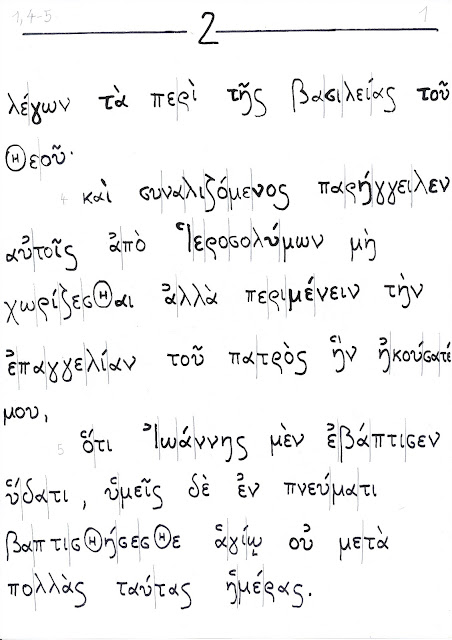 1,4-5 2 1
λέγων τὰ περὶ τῆς βασιλείας τοῦ
Θεοῦ·
4 καὶ συναλιζόμενος παρήγγειλεν
αὐτοῖς ἀπὸ Ἱεροσολύμων μὴ
χωρίζεσΘαι ἀλλὰ περιμένειν τὴν
ἐπαγγελίαν τοῦ πατρὸς ἣν ἠκούσατέ
μου,
5 ὅτι Ἰωάννης μὲν ἐβάπτισεν
ὕδατι, ὑμεῖς δὲ ἐν πνεύματι
βαπτισΘήσεσΘε ἁγίῳ οὐ μετὰ
πολλὰς ταύτας ἡμέρας.